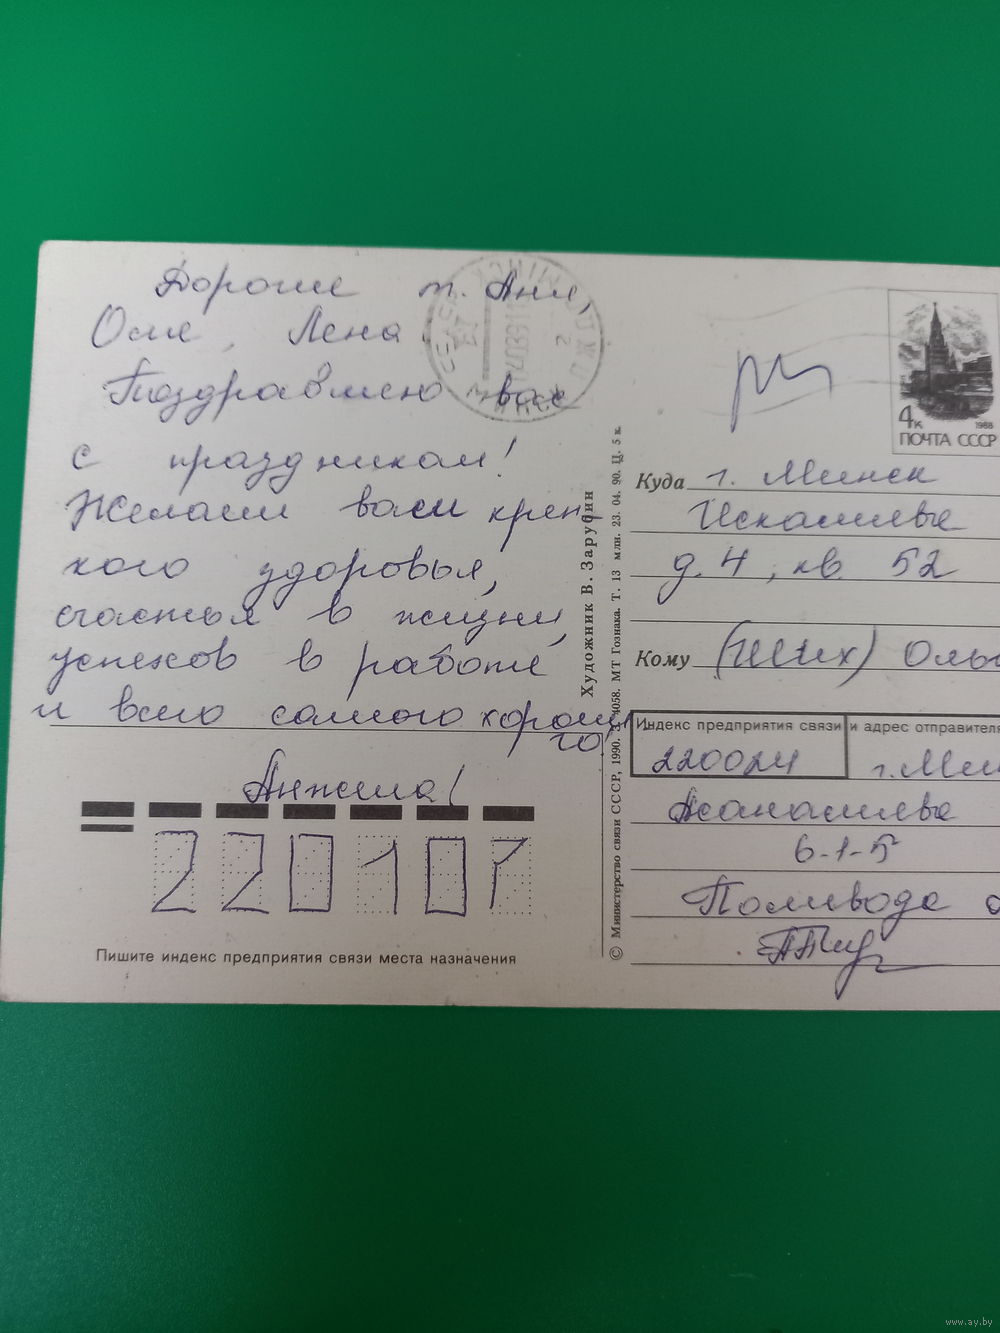 Дорогие т. Аня,
Оля, Лена.
Поздравляю вас
с праздником!
Желаю вам креп-
кого здоровья,
счастья в жизни,
успехов в работе
и всего самого хороше
го,
Анжела!
220107
Пишите индекс предприятия связи места назначения
Художник В. Зарубин
© Министерство связи СССР, 1990. З. 4058. МТ Гознака. Т. 13 млн. 23. 04. 90. Ц. 5 к.
МИНСК
4к
1988
ПОЧТА СССР
Куда г. Минск
д. 4, кв. 52
Кому (Ших) Оль
Индекс предприятия связи и адрес отправителя
220024 г. Ми
6-1-5
Поливода
www.ay.by